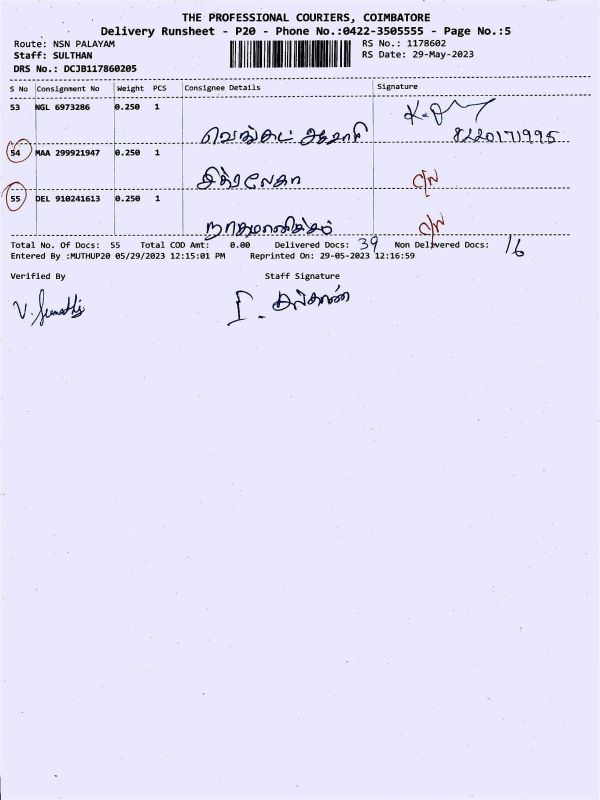 THE PROFESSIONAL COURIERS, COIMBATORE
Delivery Runsheet - P20 - Phone No.:0422-3505555 - Page No.:5
Route: NSN PALAYAM
RS No.: 1178602
Staff: SULTHAN
RS Date: 29-May-2023
DRS No.: DCJB117860205
S No Consignment No Weight PCS Consignee Details Signature
53 NGL 6973286 0.250 1
வெங்கட்
8220171995
54 MAA 299921947 0.250 1
சித்ரலேகா C/N
55 DEL 910241613 0.250 1
நாகமாணிக்கம் C/N
Total No. Of Docs: 55 Total COD Amt: 0.00 Delivered Docs: 39 Non Delivered Docs: 16
Entered By :MUTHUP20 05/29/2023 12:15:01 PM Reprinted On: 29-05-2023 12:16:59
Verified By Staff Signature